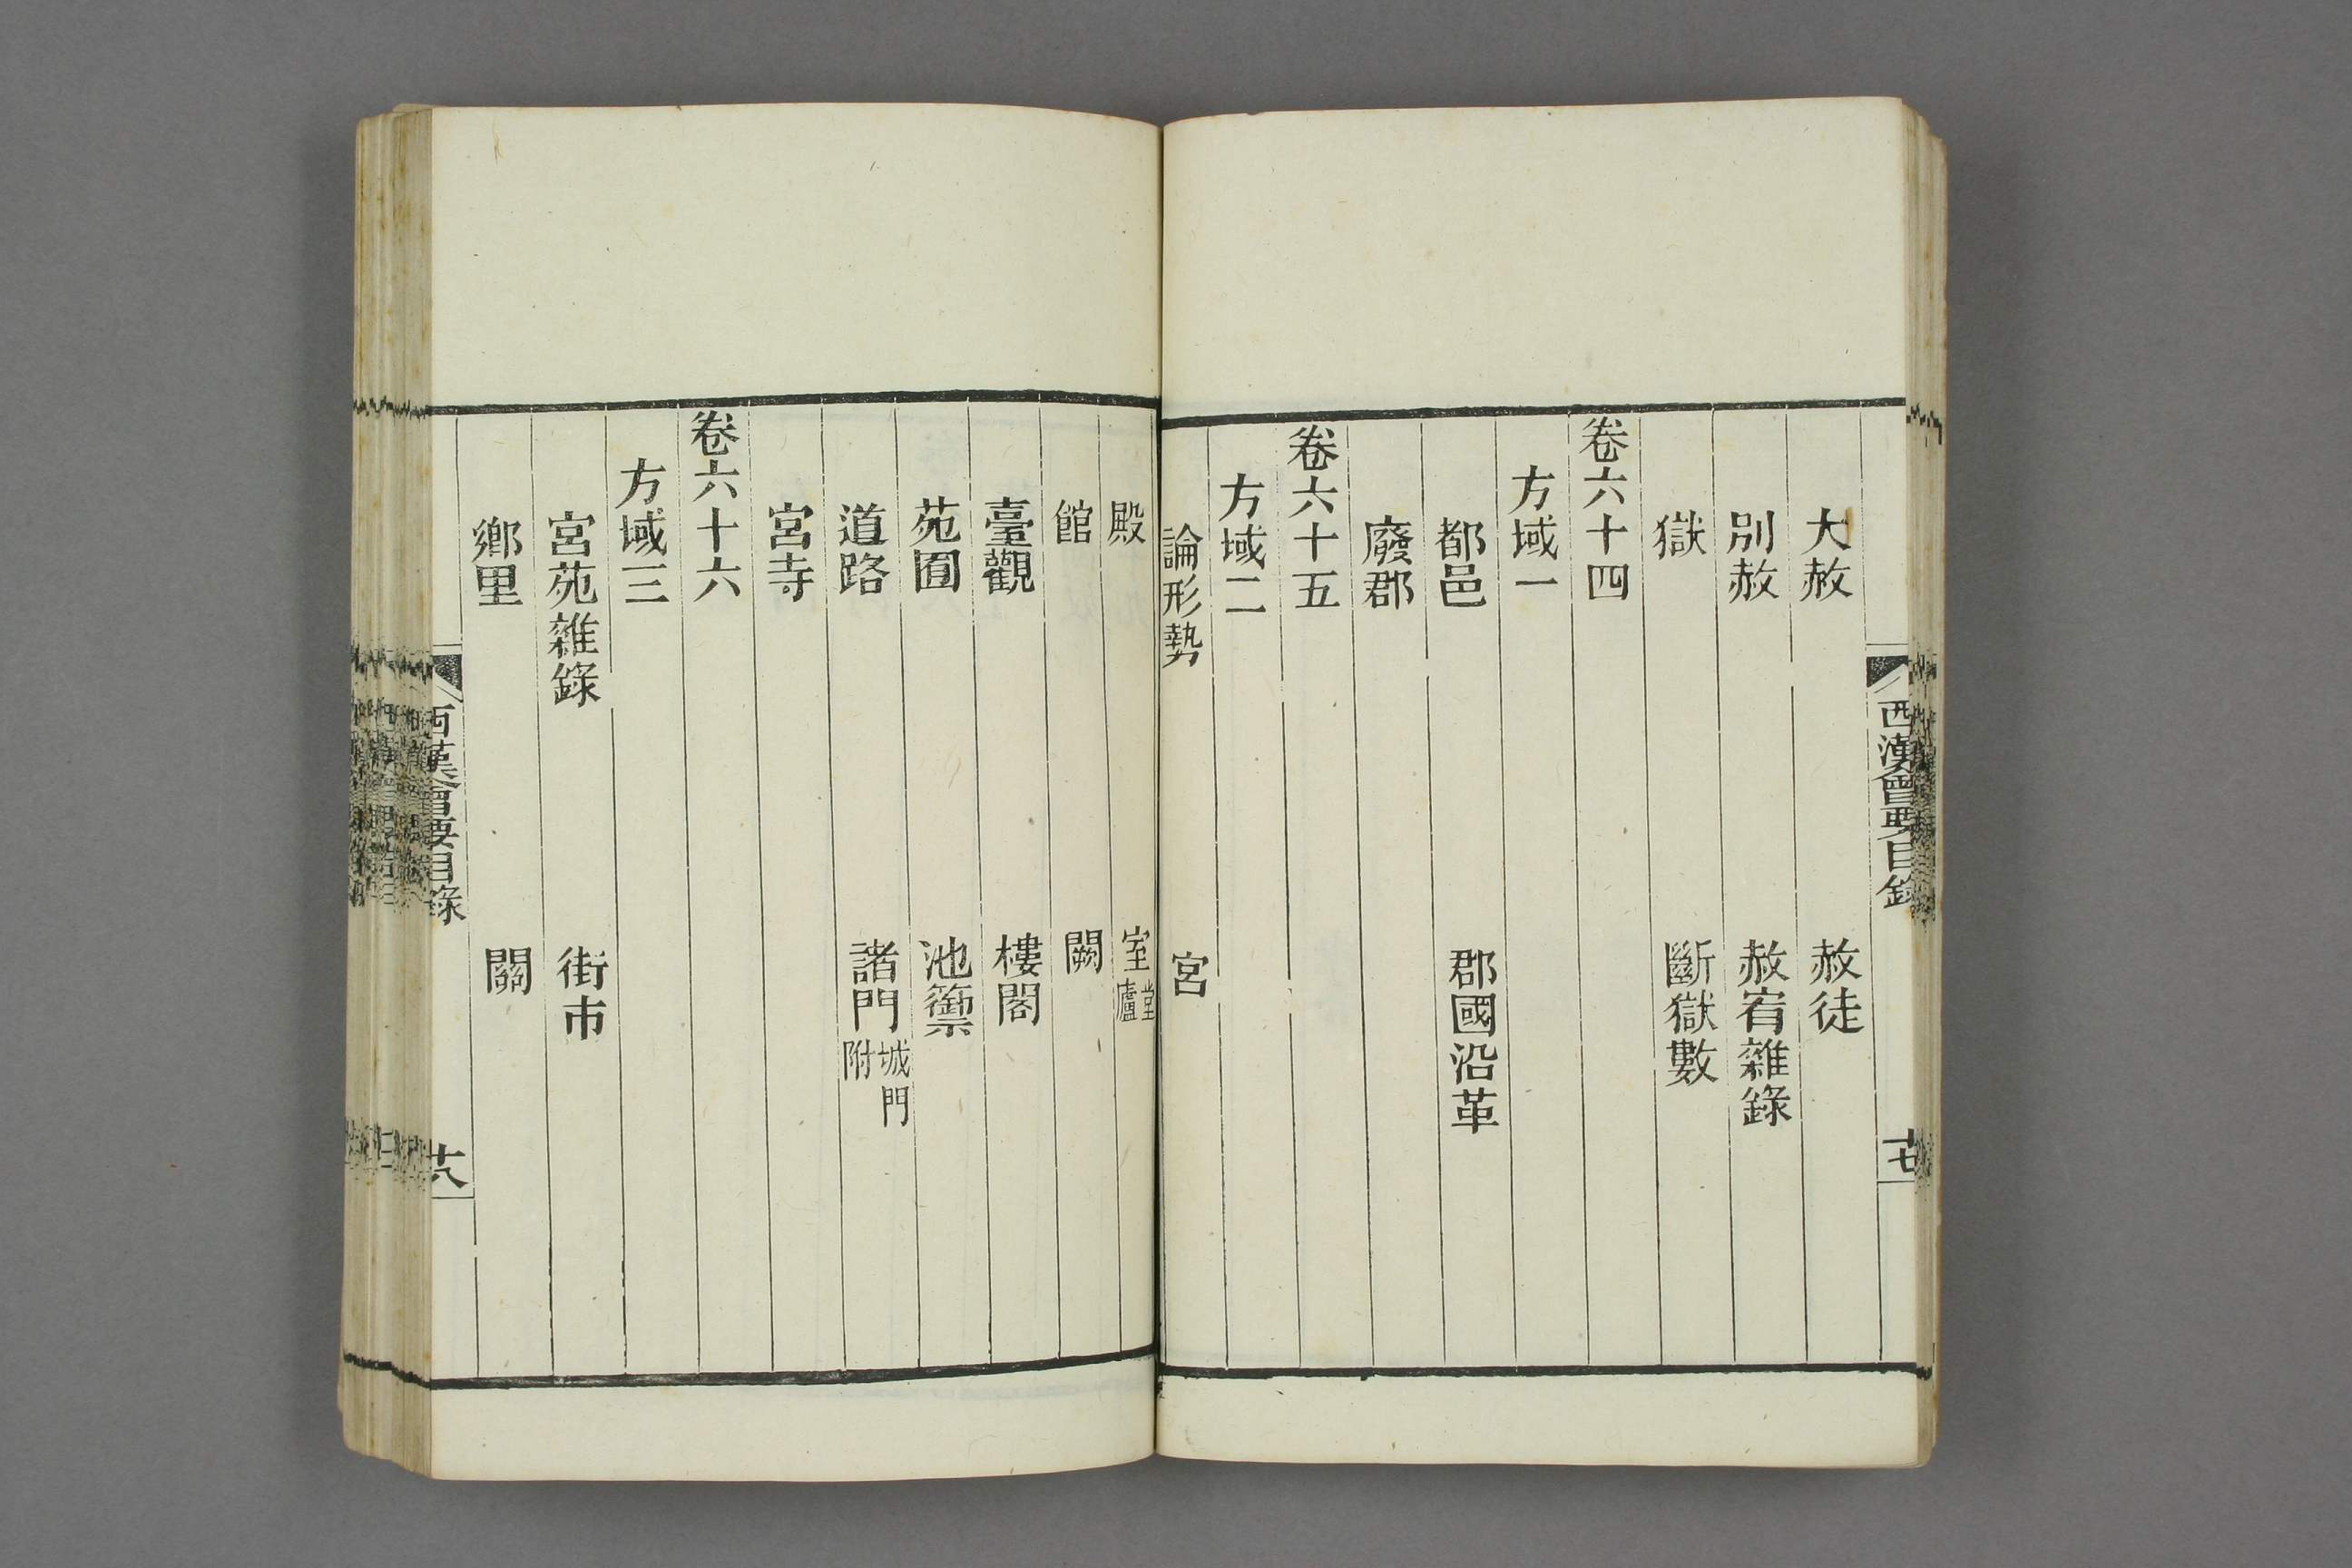 大赦　赦徒
別赦　赦宥雜錄
獄　斷獄數
卷六十四
方域一
都邑　郡國沿革
廢郡
卷六十五
方域二
論形勢　宮
西漢會要目錄
殿　室堂廬
館　闕
臺觀　樓閣
苑囿　池籞
道路　諸門城門附
宮寺
卷六十六
方域三
宮苑雜錄　街市
鄉里　關
西漢會要目錄　六